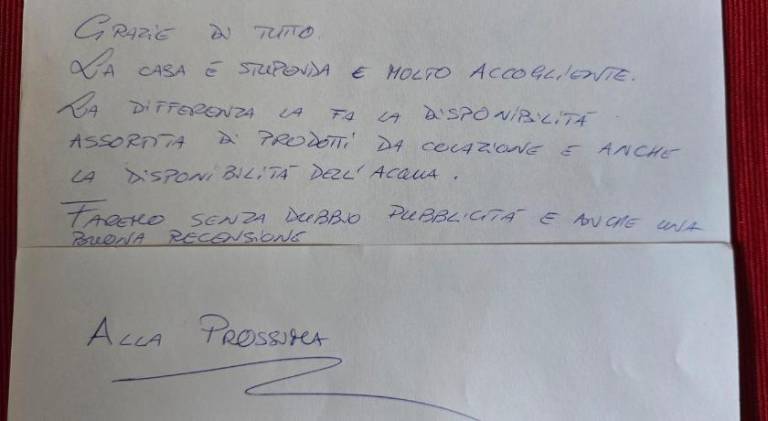 GRAZIE DI TUTTO.
LA CASA È STUPENDA E MOLTO ACCOGLIENTE.
LA DIFFERENZA LA FA LA DISPONIBILITÀ
ASSORTITA DI PRODOTTI DA COLAZIONE E ANCHE
LA DISPONIBILITÀ DELL'ACQUA.
FAREMO SENZA DUBBIO PUBBLICITÀ E ANCHE UNA
BUONA RECENSIONE
ALLA PROSSIMA